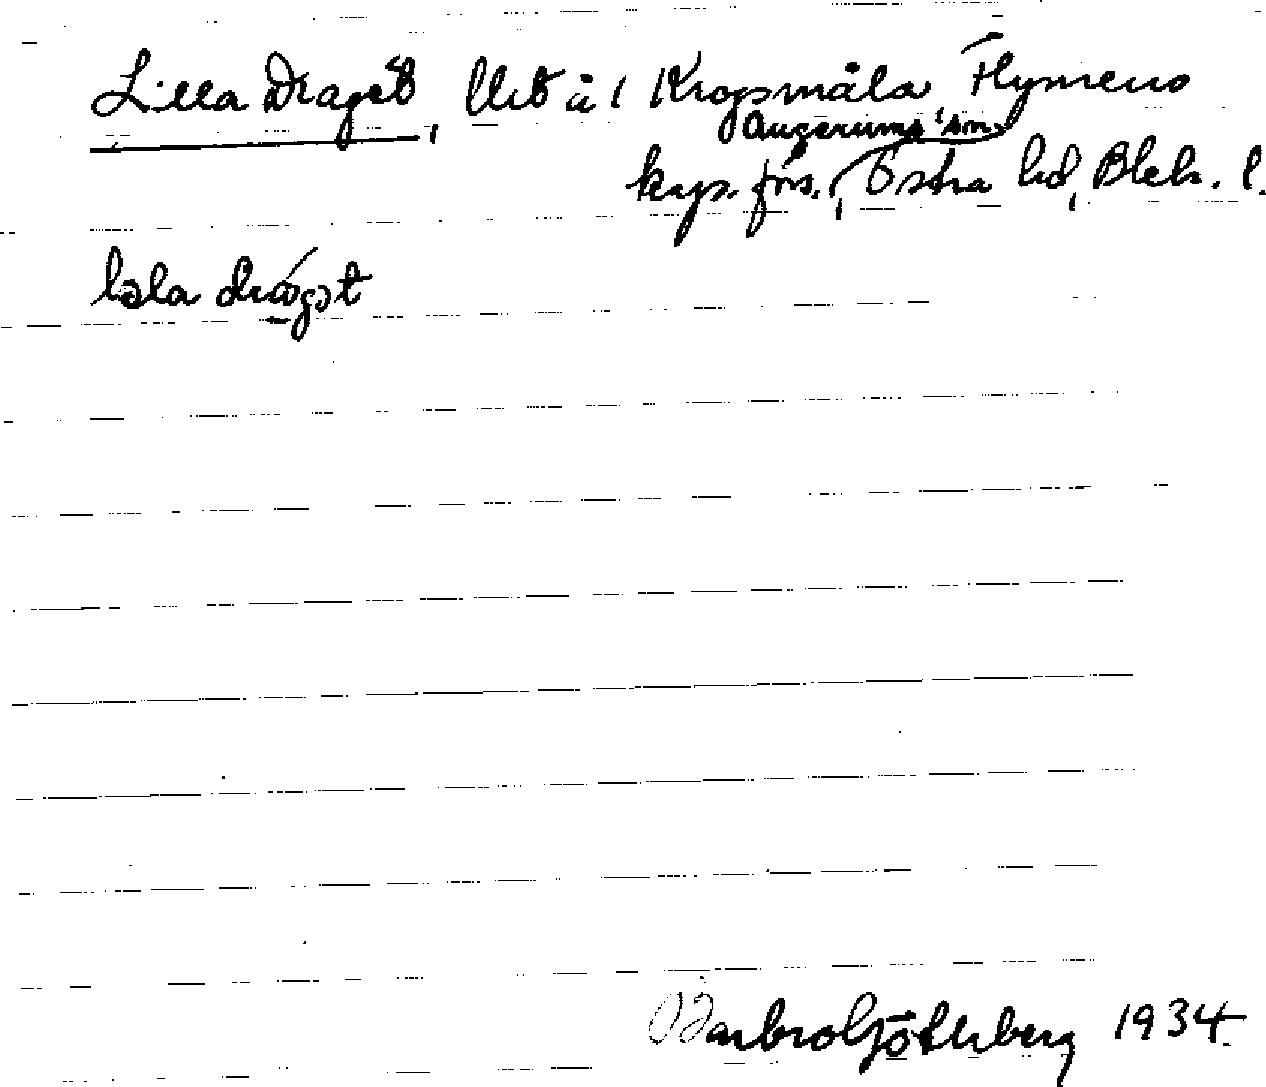 Lilla Draget, Utb å 1 Kropsmåla, Flymens
Augerums sn
kap. förs., Östra hd, Blek. l.
ləla drágət
Barbro Götherberg 1934